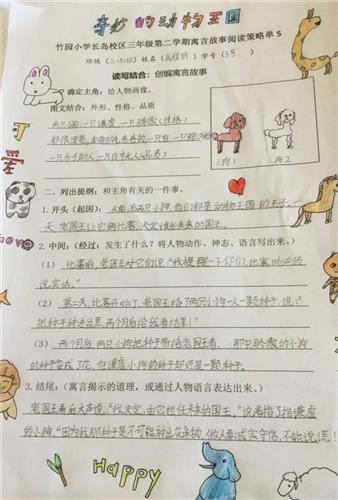 奇妙的动物王国
竹园小学长岛校区三年级第二学期寓言故事阅读策略单 5
班级 姓名 学号
读写结合：创编寓言故事
一、确定主角：给人物画像。
图文结合：外形、性格、品质
两只小狗：一只谦虚 一只骄傲（性格）
都很漂亮
一只乐于助人 （品质）
小狗1 小狗2
可
爱
二、列出提纲：和主角有关的一件事。
1. 开头（起因）：从前有两只小狗，他们都是动物王国的王子。一
天老国王让它俩比赛，决定谁当未来的国王。
2. 中间：（经过：发生了什么？将人物动作、神态、语言写出来。）
（1）比赛前，老国王对它们说："我提醒一下你们，比赛时必须
说实话。"
（2）第一天，比赛开始了，老国王给了两只小狗一人一颗种子，说：
"把种子种进土里，两个月后给我看结果！"
（3）两个月后，两只小狗把种子带给老国王看，那只骄傲的小狗
的种子变成了花，但谦虚小狗的种子却还是一颗种子。
3. 结尾：（寓言揭示的道理，或通过人物语言表达出来。）
老国王看后大声说："我决定，由它担任未来的国王。"说着指了指谦虚
的小狗，"因为我那种子是不可能种出花来的，做人要诚实守信，不能说谎！
Happy